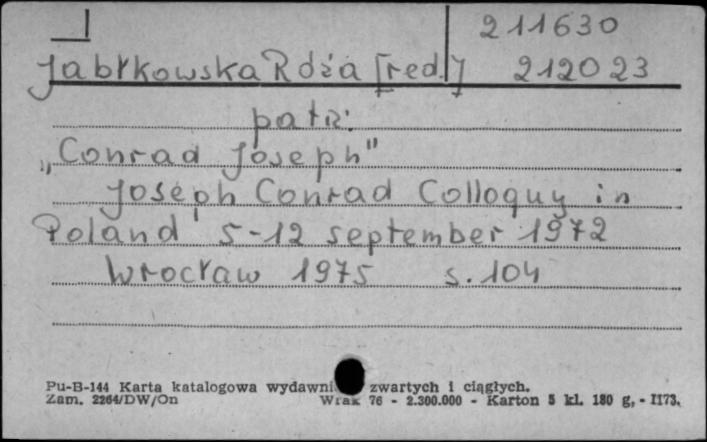 211630
Jabłkowska Róża [red.] 212023
patrz:
„Conrad Joseph"
Joseph Conrad Colloquy in
Poland 5-12 september 1972
Wrocław 1975 s. 104
Pu-B-144 Karta katalogowa wydawni zwartych i ciągłych.
Zam. 2264/DW/On Wrak 76 - 2.300.000 - Karton 5 kl. 180 g, - II73.